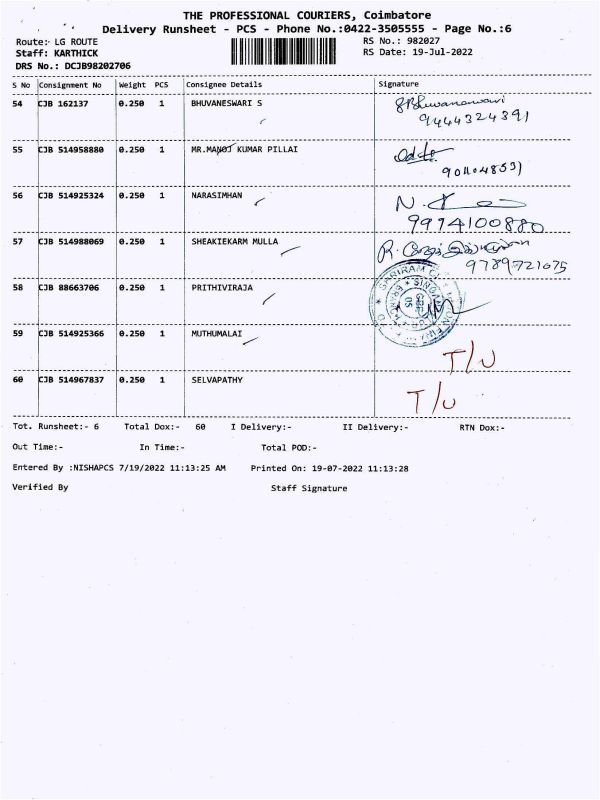 THE PROFESSIONAL COURIERS, Coimbatore
Delivery Runsheet - PCS - Phone No.:0422-3505555 - Page No.:6
Route:- LG ROUTE RS No.: 982027
Staff: KARTHICK RS Date: 19-Jul-2022
DRS No.: DCJB98202706
S No Consignment No Weight PCS Consignee Details Signature
54 CJB 162137 0.250 1 BHUVANESWARI S
9444324391
55 CJB 514958880 0.250 1 MR.MANOJ KUMAR PILLAI
56 CJB 514925324 0.250 1 NARASIMHAN
9994100880
57 CJB 514988069 0.250 1 SHEAKIEKARM MULLA
9789721075
58 CJB 88663706 0.250 1 PRITHIVIRAJA
59 CJB 514925366 0.250 1 MUTHUMALAI
T/U
60 CJB 514967837 0.250 1 SELVAPATHY
T/U
Tot. Runsheet:- 6 Total Dox:- 60 I Delivery:- II Delivery:- RTN Dox:-
Out Time:- In Time:- Total POD:-
Entered By :NISHAPCS 7/19/2022 11:13:25 AM Printed On: 19-07-2022 11:13:28
Verified By Staff Signature